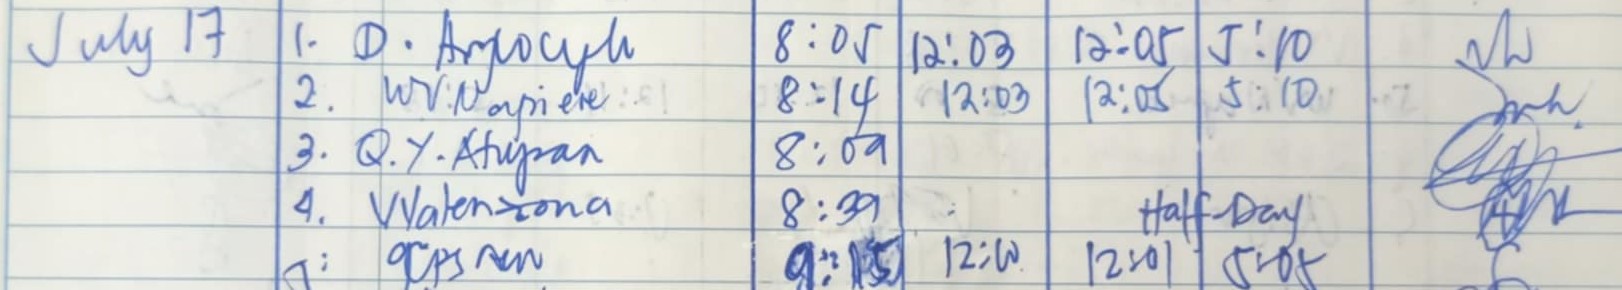 July 17 1. D. 8:05 12:03 12:05 5:10
2. WV. Napiere 8:14 12:03 12:05 5:10
3. Q.Y. Atupan 8:09
4. VValenzona 8:39 Half-Day
9:15 12:01 5:05